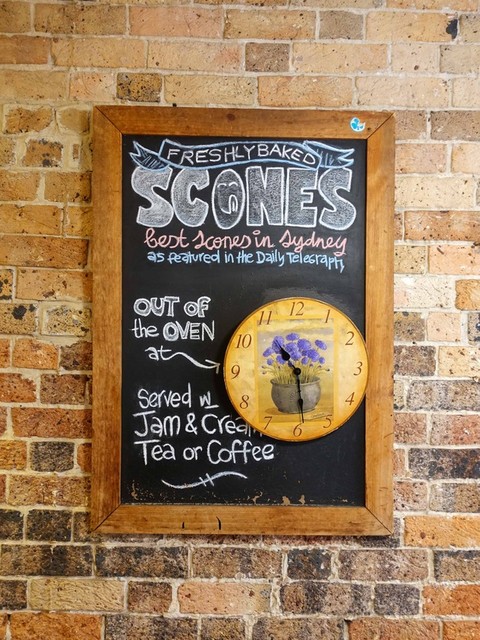 FRESHLY BAKED
SCONES
best Scones in Sydney
as featured in the Daily Telegraph
OUT OF
the OVEN
at
12
1
2
3
4
5
6
7
8
9
10
11
Served w
Jam & Cream
Tea or Coffee